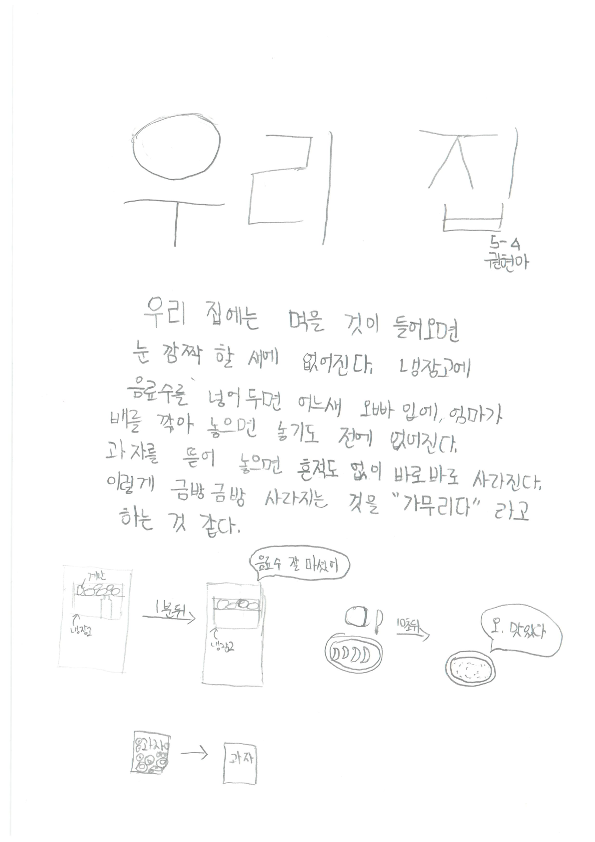 우리 집
5-4
권현아
우리 집에는 먹을 것이 들어오면
눈 깜짝 할 새에 없어진다. 냉장고에
음료수를 넣어두면 어느새 오빠 입에, 엄마가
배를 깍아 놓으면 놓기도 전에 없어진다.
과자를 뜯어 놓으면 흔적도 없이 바로바로 사라진다.
이렇게 금방금방 사라지는 것을 "가무리다" 라고
하는 것 같다.
음료수 잘 마셨어
계란
1분뒤
냉장고
냉장고
10초뒤
오, 맛있다
과자
과자